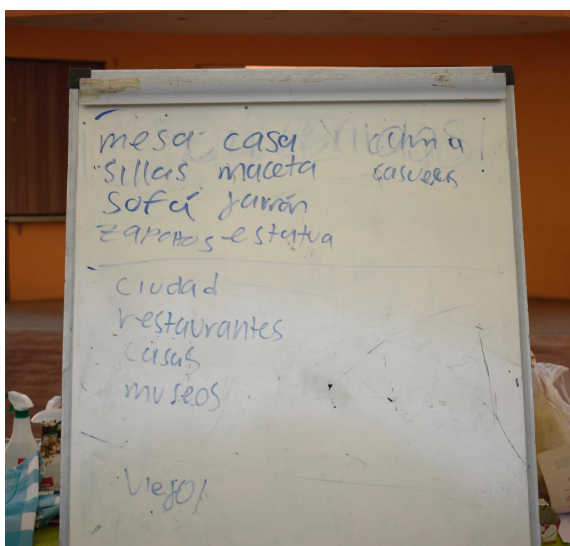 mesa casa cama
sillas maceta
sofá jarrón
zapatos estatua
ciudad
restaurantes
casas
museos
viejo/